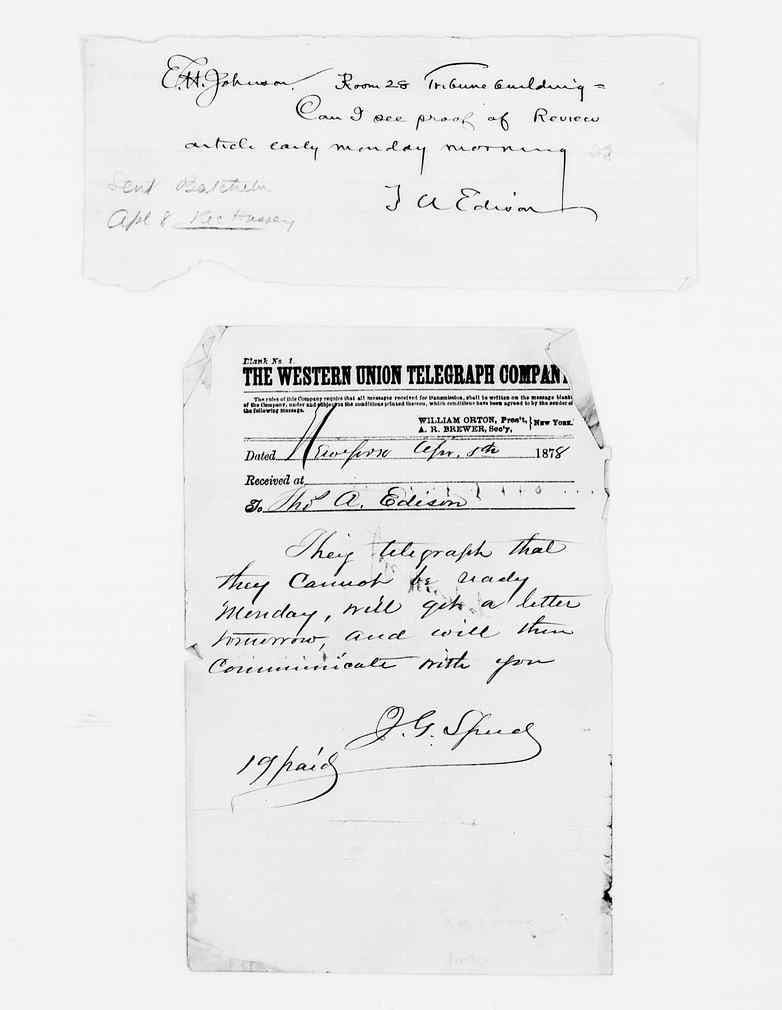 E.H. Johnson. Room 28 Tribune building =
Can I see proof of Review
article early monday morning
T A Edison
Sent Batchelr
Apl 8
Blank No. 1.
THE WESTERN UNION TELEGRAPH COMPANY
The rules of this Company require that all messages received for transmission, shall be written on the message blanks
of the Company, under and subject to the conditions printed thereon, which conditions have been agreed to by the sender of
the following message.
WILLIAM ORTON, Pres't,
A. R. BREWER, Sec'y, } New York.
Dated Apr. 8th 1878
Received at
To Thos A. Edison
They telegraph that
they cannot be ready
Monday, will get a letter
tomorrow, and will then
Communicate with you
J. G.
19 paid